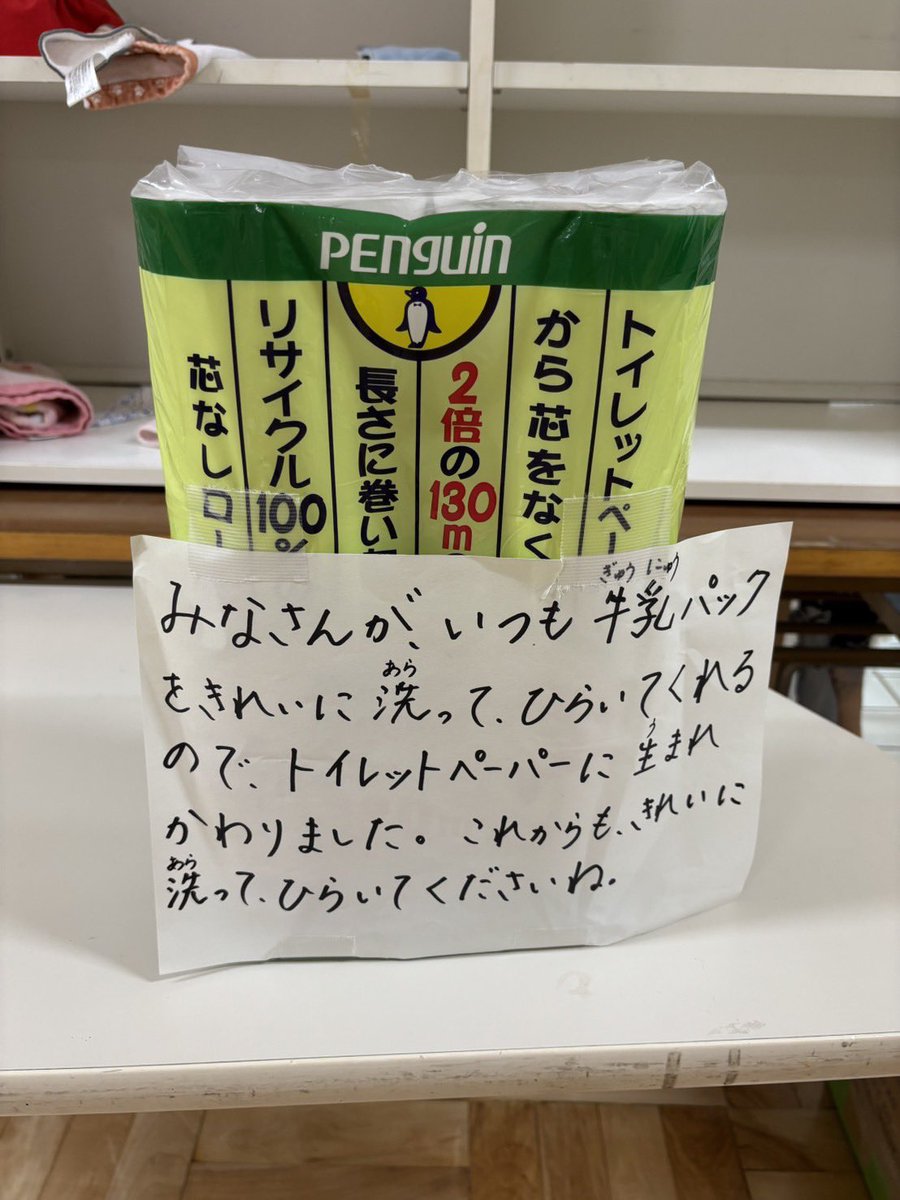 PENGUIN
トイレットペー
から芯をなく
2倍の130m
長さに巻い
リサイクル100%
芯なしロー
みなさんが、いつも牛乳パック
ぎゅうにゅう
をきれいに洗って、ひらいてくれる
あら
ので、トイレットペーパーに生まれ
う
かわりました。これからも、きれいに
洗って、ひらいてくださいね。
あら